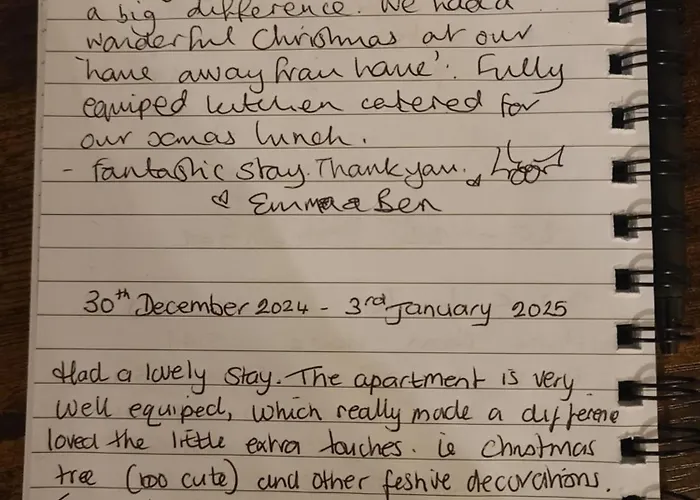 a big difference. We had a
wonderful Christmas at our
'home away from home'. Fully
equiped kitchen catered for
our xmas lunch.
- Fantastic stay. Thank you.
Emma & Ben
30th December 2024 - 3rd January 2025
Had a lovely stay. The apartment is very
well equiped, which really made a differene
loved the little extra touches. ie Christmas
tree (too cute) and other festive decorations.